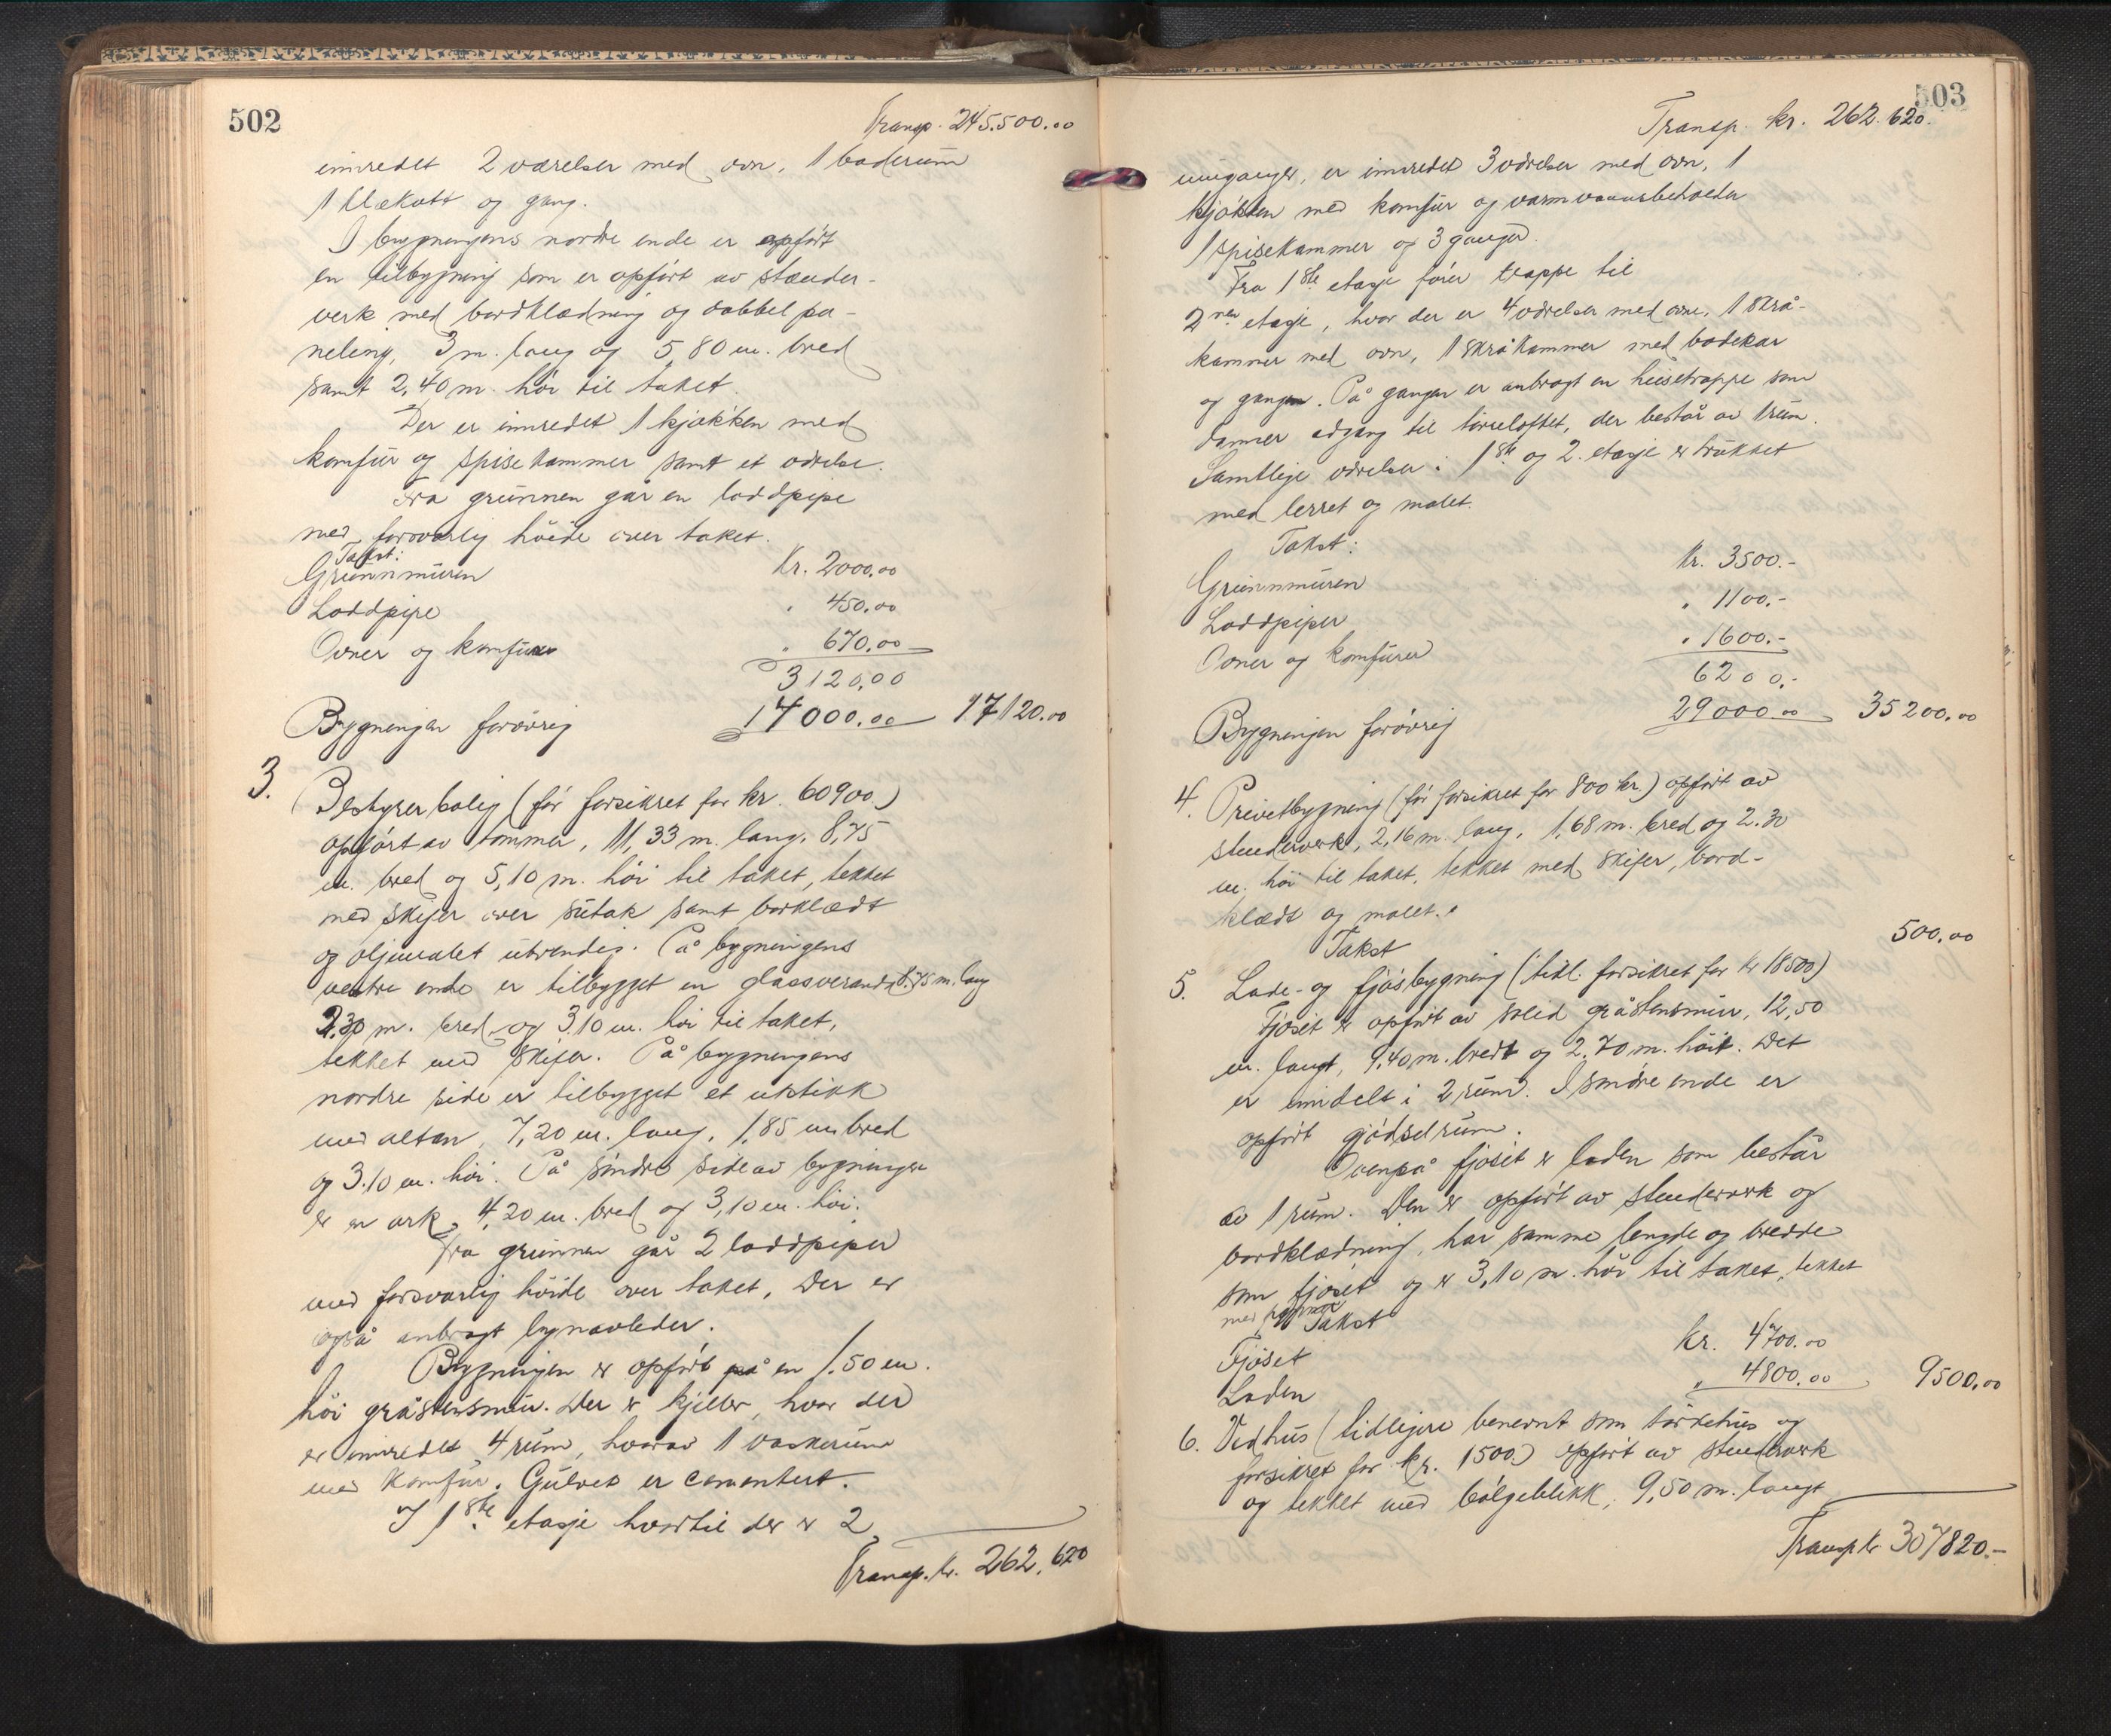 502
Transp. 245.500.00
innredet 2 værelser med ovn, 1 baderum
1 klækott og gang.
I bygningens nordre ende er opført
en tilbygning som er opført av stænder-
verk med bordklædning og dobbel pa-
neling, 3 m. lang og 5,80 m. bred
samt 2,40 m. høi til taket.
Der er innredet 1 kjøkken med
komfur og spisekammer samt et værelse.
Fra grunnen går en loddpipe
med forsvarlig høide over taket.
Takst:
Grunnmuren Kr. 2000,00
Loddpipe " 450,00
Ovner og komfur " 670,00
3120,00
Bygningen forøvrig 14000,00 17120.00
3. Bestyrerbolig (før forsikret for kr. 60900)
opført av tømmer, 11,33 m. lang, 8,75
m. bred og 5,10 m. høi til taket, tekket
med skifer over sutak samt bordklædt
og oljemalet utvendig. På bygningens
vestre ende er tilbygget en glassveranda 8.75 m. lang
2,30 m. bred og 3,10 m. høi til taket,
tekket med skifer. På bygningens
nordre side er tilbygget et utstikk
med altan, 7,20 m. lang, 1,85 m bred
og 3.10 m. høi. På søndre side av bygningen
er en ark, 4,20 m. bred og 3,10 m. høi.
Fra grunnen går 2 loddpiper
med forsvarlig høide over taket. Der er
også anbragt lynavleder.
Bygningen er opført på en 1.50 m.
høi gråstensmur. Der er kjeller, hvor der
er innredet 4 rum, hvorav 1 vaskerum
med komfur. Gulvet er cementert.
I 1ste etasje hvortil der er 2
Transp. kr. 262.620
503
Transp. kr. 262.620.
innganger, er innredet 3 værelser med ovn, 1
kjøkken med komfur og varmvannsbeholder
1 spisekammer og 3 ganger.
Fra 1ste etasje fører trappe til
2nen etasje, hvor der er 4 værelser med ovne, 1 skrå-
kammer med ovn, 1 skråkammer med badekar
og gangen. På gangen er anbragt en heisetrappe som
danner adgang til tørreloftet, der består av 1 rum.
Samtlige værelser i 1ste og 2. etasje er trukket
med lerret og malet.
Takst:
Grunnmuren Kr. 3500.-
Loddpiper " 1100.-
Ovner og komfurer " 1600.-
6200.-
Bygningen forøvrig 29000.00 35200.00
4. Privetbygning (før forsikret for 800 kr.) opført av
stenderverk, 2,16 m. lang, 1,68 m. bred og 2.30
m. høi til taket, tekket med skifer, bord-
klædt og malet.
Takst 500.00
5. Lade- og fjøsbygning (tidl. forsikret for kr 18500)
Fjøset er opført av solid gråstensmur, 12,50
m. langt, 9.40 m. bredt og 2.70 m. høit. Det
er inndelt i 2 rum. I søndre ende er
opført gjødselrum.
Ovenpå fjøset er laden som består
av 1 rum. Den er opført av stenderverk og
bordklædning, har samme lengde og bredde
som fjøset og er 3,10 m. høi til taket, tekket
med
Takst
Fjøset kr. 4700.00
Laden " 4800.00 9500.00
6. Vedhus (tidligere benevnt som tørkehus og
forsikret for kr. 1500.) opført av stenderverk
og tekket med bølgeblikk, 9,50 m. langt
Transp kr 307820.-